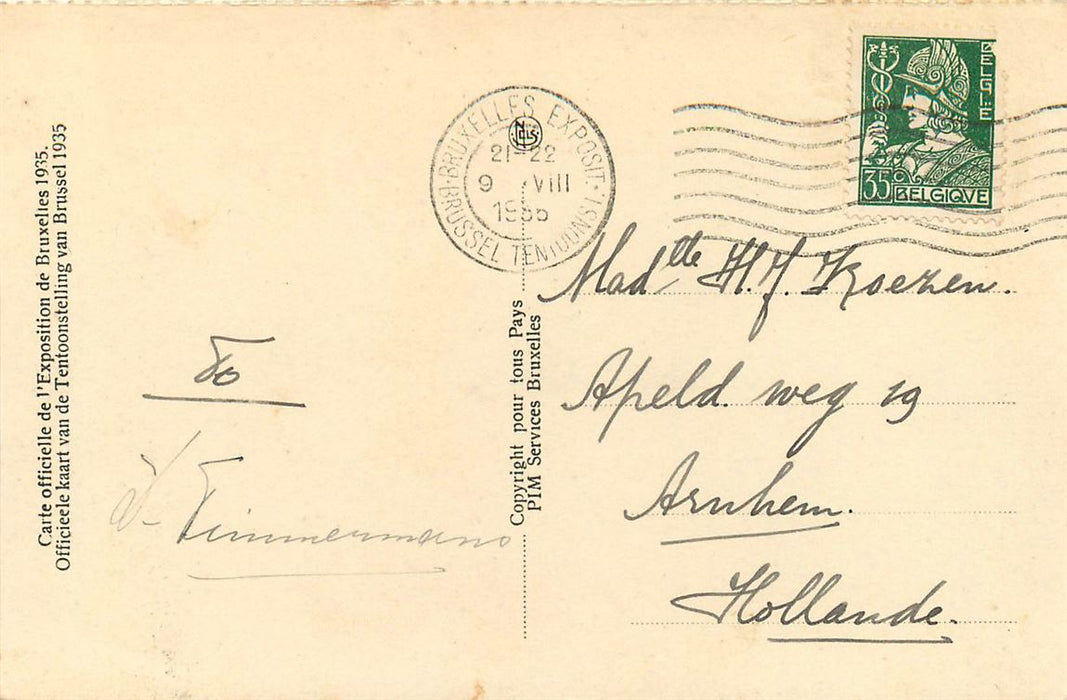 Carte officielle de l'Exposition de Bruxelles 1935.
Officieele kaart van de Tentoonstelling van Brussel 1935
BRUXELLES EXPOSIT.
BRUSSEL TENTOONST.
NELS
21-22
9 VIII
1935
BELGIE
35c BELGIQVE
Copyright pour tous Pays
PIM Services Bruxelles
Timmermans
Madlle H. J. Koezen.
Apeld. weg 19
Arnhem.
Hollande.